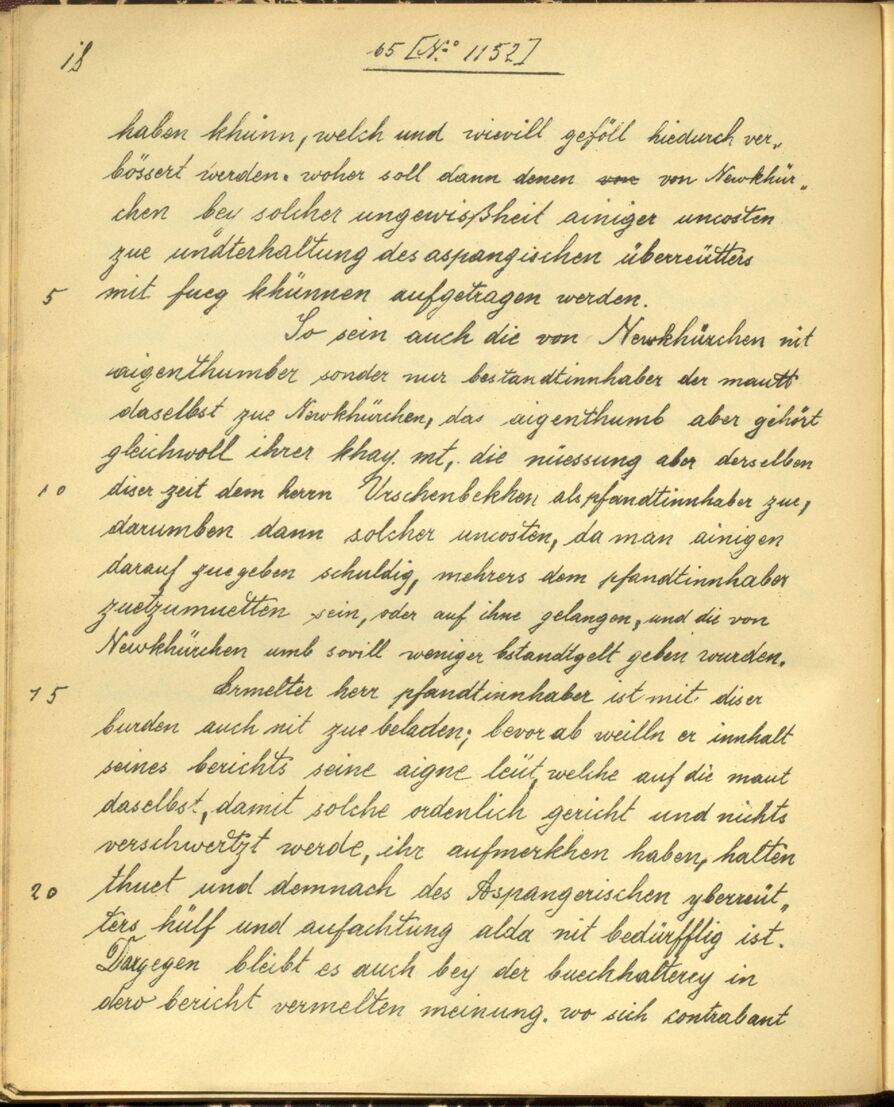 18
65 [No 1152]
haben khünn, welch und wievill geföll hiedurch ver„
bössert werden. woher soll dann denen von von Newkhür„
chen bey solcher ungewißheit ainiger uncosten
zue ündterhaltung des aspangischen überreütters
5 mit fueg khünnen aufgetragen werden.
So sein auch die von Newkhürchen nit
aigenthumber sonder nur bestandtinnhaber der mautt
daselbst zue Newkhürchen, das aigenthumb aber gehört
gleichwoll ihrer khay. mt., die nüessung aber derselben
10 diser zeit dem herrn Urschenbekhen als pfandtinnhaber zue,
darumben dann solcher uncosten, da man ainigen
darauf zue geben schuldig, mehrers dem pfandtinnhaber
zuetzumuetten sein, oder auf ihne gelangen, und die von
Newkhürchen umb sovill weniger bstandtgelt geben wurden.
15 Ermelter herr pfandtinnhaber ist mit diser
burden auch nit zue beladen; bevorab weilln er innhalt
seines berichts seine aigne leüt, welche auf die maut
daselbst, damit solche ordenlich gericht und nichts
verschwertzt werde, ihr aufmerkhen haben, halten
20 thuet und demnach des Aspangerischen yberreüt„
ters hülf und aufachtung alda nit bedürfflig ist.
Dargegen bleibt es auch bey der buechhalterey in
dero bericht vermelten meinung. wo sich contrabant